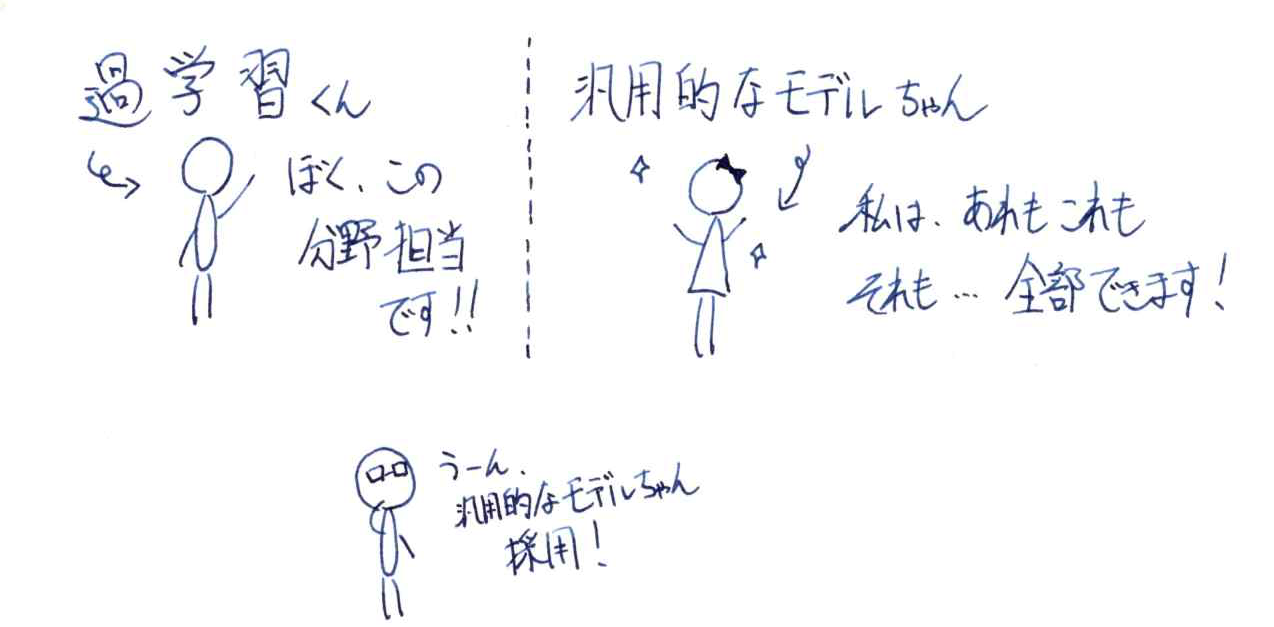 過学習くん
ぼく、この
分野担当
です!!
汎用的なモデルちゃん
私は、あれもこれも
それも…全部できます!
うーん、
汎用的なモデルちゃん
採用!